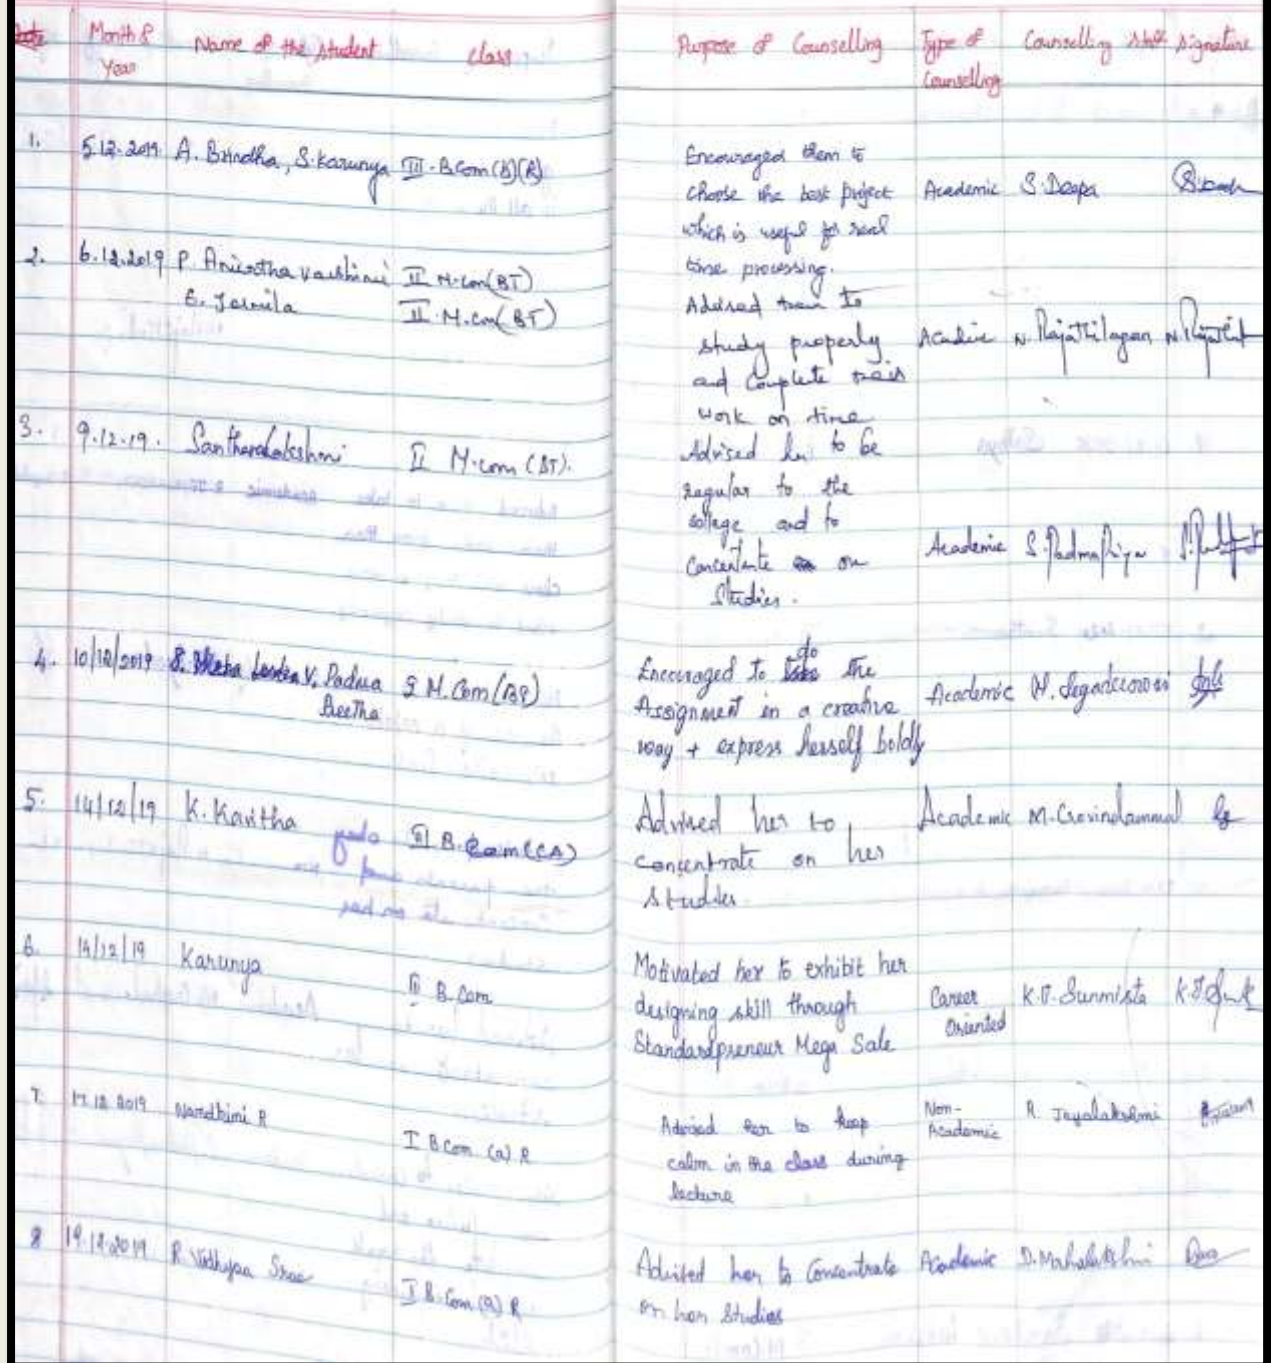 Month & Year Name of the student class Purpose of Counselling Type of Counselling Counselling Staff Signature
1. 5.12.2019 A. Brindha, S. Karunya III - B.Com(B)(R)
Encouraged them to
choose the best project
which is useful for real
time processing.
Academic S. Deepa
2. 6.12.2019 P. Amirtha varshini II M.com(BT)
E. Jamila II M.Com(BT)
Advised them to
study properly
and complete their
work on time
N. Rajathilagam
3. 9.12.19. Santhanalakshmi II M.com (BT).
Advised her to be
regular to the
college and to
on
Studies.
Academic S. Padmapriya
4. 10/12/2019 V. Padma
Preetha
M.Com(BT)
Encouraged to do the
Assignment in a creative
way + express herself boldly
Academic
5. 14/12/19 K. Kavitha III B.Com(CA)
Advised her to
concentrate on her
studies.
Academic M. Govindammal
6. 14/12/19 Karunya II B.Com
Motivated her to exhibit her
designing skill through
Standardpreneur Mega Sale
Career
Oriented
K.J. Sunmista
7. 17.12.2019 Nandhini R I B.Com (a) R
Advised her to keep
calm in the class during
lecture
Non-
Academic
R. Jayalakshmi
8 19.12.2019 R. I B.Com (a) R
Advised her to Concentrate
on her Studies
Academic D. Mahalakshmi